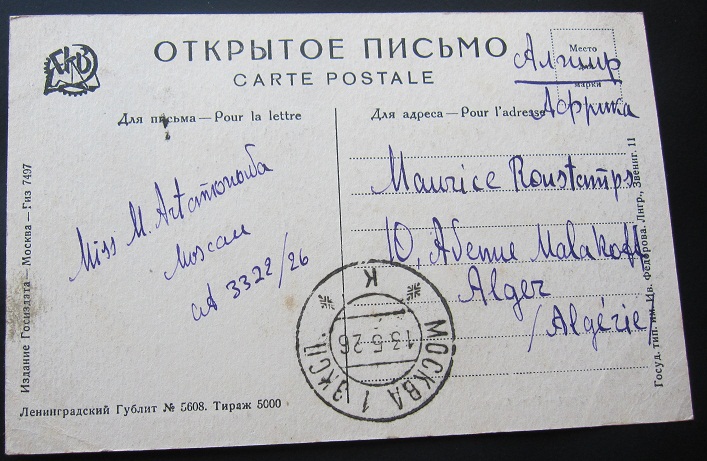 ОТКРЫТОЕ ПИСЬМО
CARTE POSTALE
Место
марки
Алжир
Африка
Для письма — Pour la lettre
Для адреса — Pour l'adresse
Miss M. Artamonowa
Moscau
cA 3322/26
Maurice Roustamps
10, Avenue Malakoff
Alger
/Algérie/
МОСКВА 1 ЭКСП.
К
13.5.26
Издание Госиздата — Москва — Гиз 7497
Ленинградский Гублит № 5608. Тираж 5000
Госуд. тип. им. Ив. Федорова. Лнгр., Звениг. 11